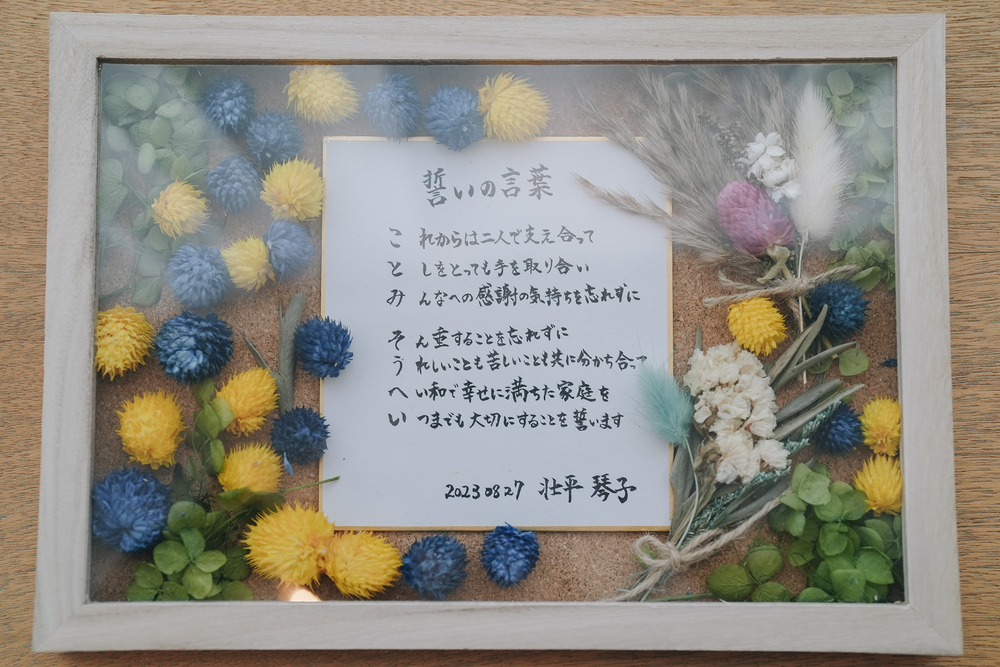 誓いの言葉
これからは二人で支え合って
としをとっても手を取り合い
みんなへの感謝の気持ちを忘れずに
そん重することを忘れずに
うれしいことも苦しいことも共に分かち合って
へい和で幸せに満ちた家庭を
いつまでも大切にすることを誓います
2023 08 27 壮平 琴子